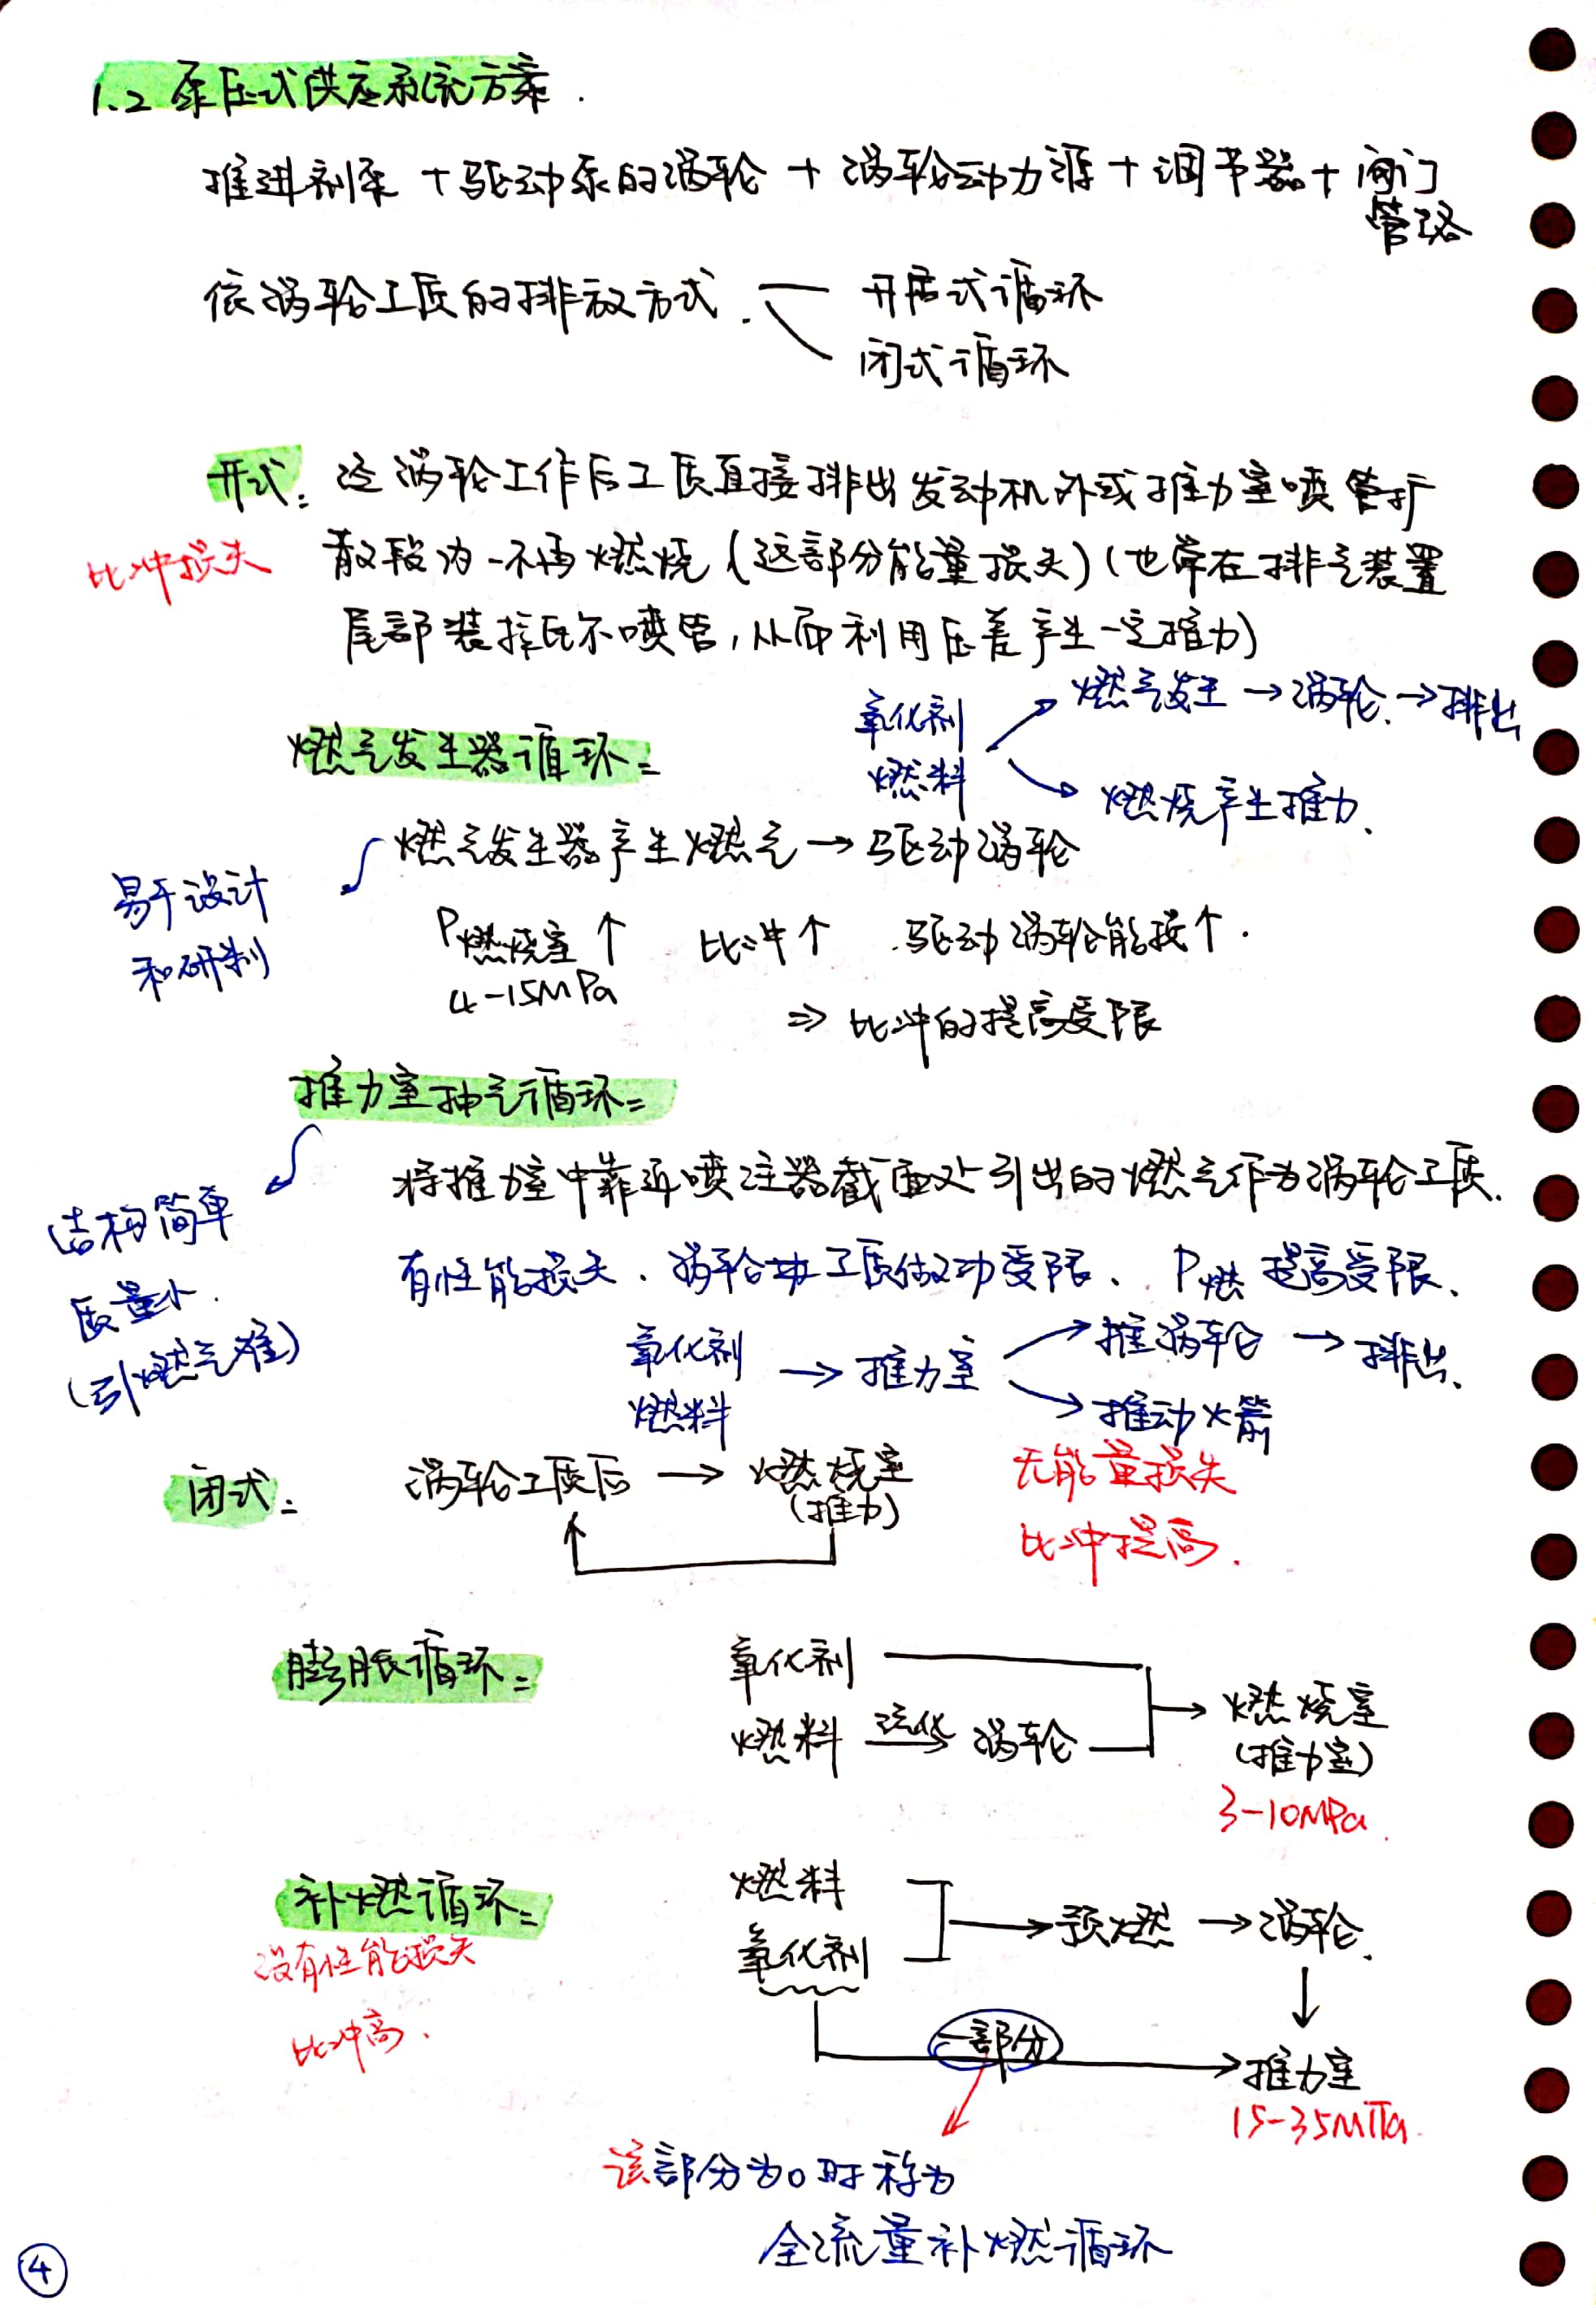 1.2 泵压式供应系统方案.
推进剂泵 + 驱动泵的涡轮 + 涡轮动力源 + 调节器 + 阀门
管路
依涡轮工质的排放方式. 开式循环
闭式循环
开式: 泛涡轮工作后工质直接排出发动机外或推力室喷管扩
比冲损失
散段内-不再燃烧 (这部分能量损失) (也常在排气装置
尾部装 喷管, 从而利用压差产生一定推力)
氧化剂
燃料
燃气发生 → 涡轮. → 排出
燃烧产生推力.
燃气发生器循环:
燃气发生器产生燃气 → 驱动涡轮
易于设计
和研制
P燃烧室 ↑ 比冲 ↑ 驱动涡轮能损 ↑.
4-15MPa
⇒ 比冲的提高受限
推力室抽气循环:
将推力室中靠近喷注器截面处引出的燃气作为涡轮工质.
结构简单
质量小.
(引燃气难)
有性能损失. 涡轮工质做功受限. P燃 提高受限.
氧化剂
燃料
→ 推力室
推涡轮 → 排出.
推动火箭
闭式: 涡轮工质后 → 燃烧室
(推力)
无能量损失
比冲提高.
膨胀循环:
氧化剂
燃料 涡轮
→ 燃烧室
(推力室)
3-10MPa.
补燃循环:
没有性能损失
比冲高.
燃料
氧化剂
→ 预燃 → 涡轮.
一部分
→ 推力室
15-35MPa.
该部分为0时称为
全流量补燃循环
④